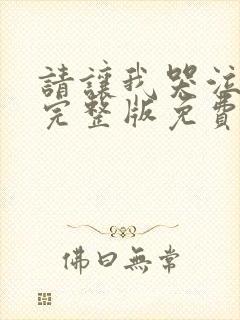 請讓我哭泣
完整版免費
佛曰無常